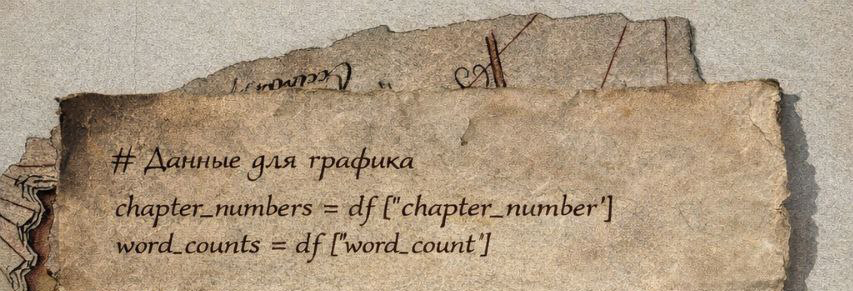 # Данные для графика
chapter_numbers = df ["chapter_number']
word_counts = df ["word_count']